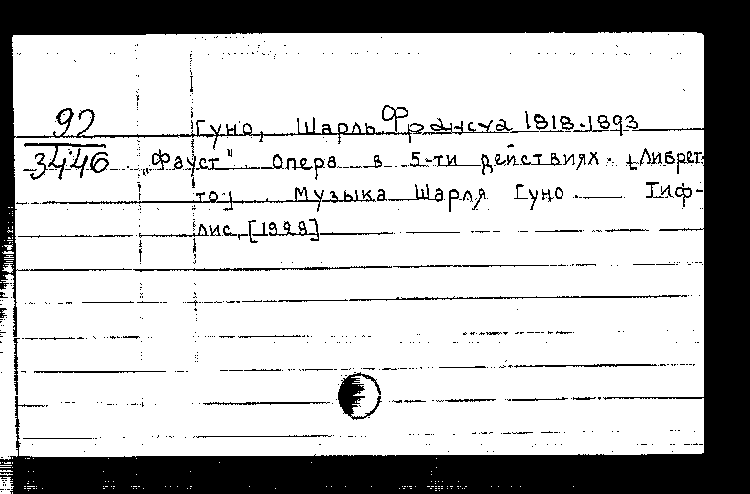 92
3446
Гуно, Шарль Франсуа 1818-1893
"Фауст". Опера в 5-ти действиях. [Либрет-
то]. Музыка Шарля Гуно. Тиф-
лис, [1929]